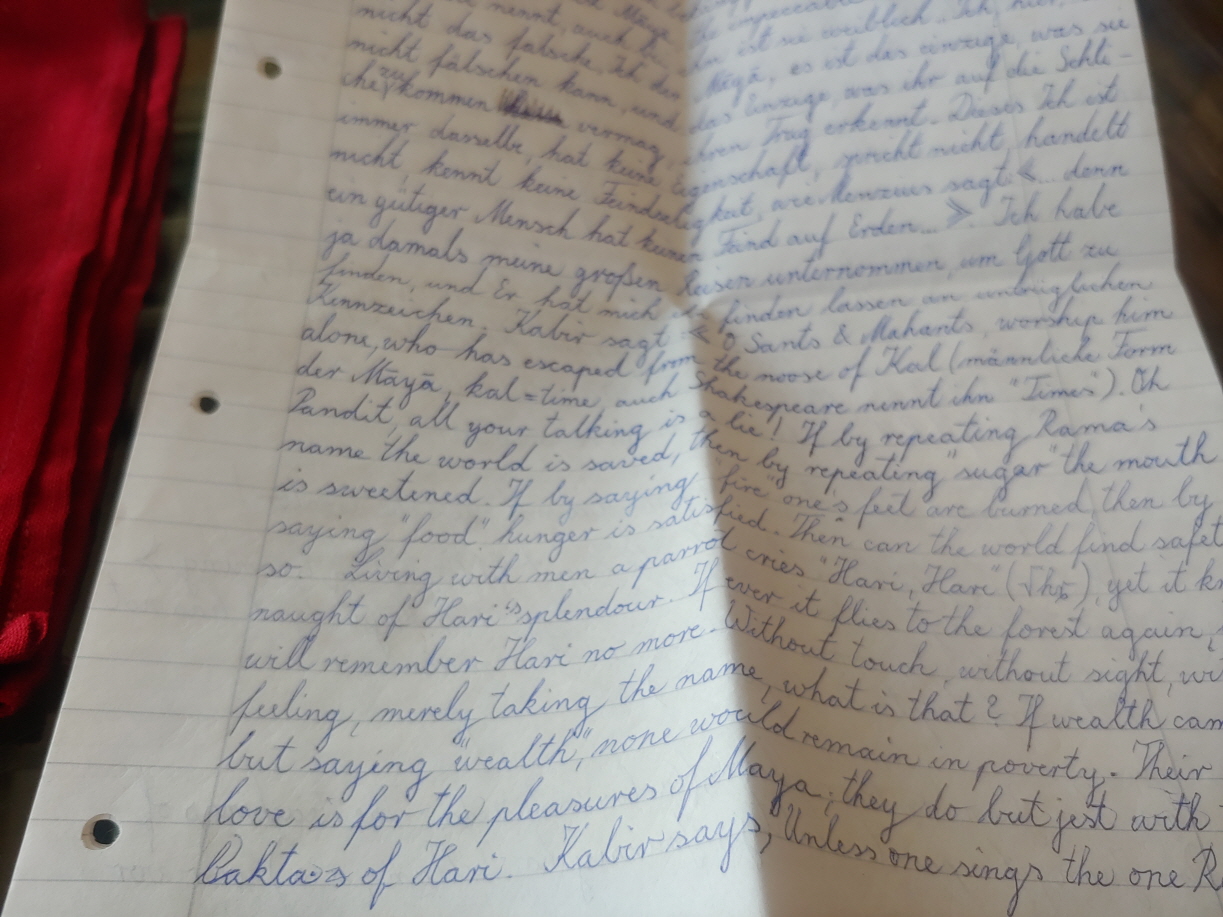 nennt, auch
nicht das falsche Ich der Māyā, es ist das einzige, was sie
nicht fälschen kann, und das Einzige, was ihr auf die Schli-
che zu kommen vermag, ihren Trug erkennt. Dieses Ich ist
immer dasselbe, hat keine Eigenschaft, spricht nicht, handelt
nicht, kennt keine Feindseligkeit, wie Menzius sagt «... denn
ein gütiger Mensch hat keinen Feind auf Erden...». Ich habe
ja damals meine großen Reisen unternommen, um Gott zu
finden, und Er hat mich finden lassen an untrüglichen
Kennzeichen. Kabir sagt « O Sants & Mahants, worship him
alone, who has escaped from the noose of Kal (männliche Form
der Māyā, kal = time, auch Shakespeare nennt ihn "Times"). Oh
Pandit, all your talking is a lie! If by repeating Rama's
name the world is saved, then by repeating "sugar" the mouth
is sweetened. If by saying "fire" one's feet are burned, then by
saying "food" hunger is satisfied. Then can the world find
so. Living with men a parrot cries "Hari, Hari" yet it
naught of Hari's splendour. If ever it flies to the forest again,
will remember Hari no more. Without touch, without sight,
feeling, merely taking the name, what is that? If wealth
but saying "wealth", none would remain in poverty. Their
love is for the pleasures of Maya; they do but jest with
Baktas of Hari. Kabir says, Unless one sings the one